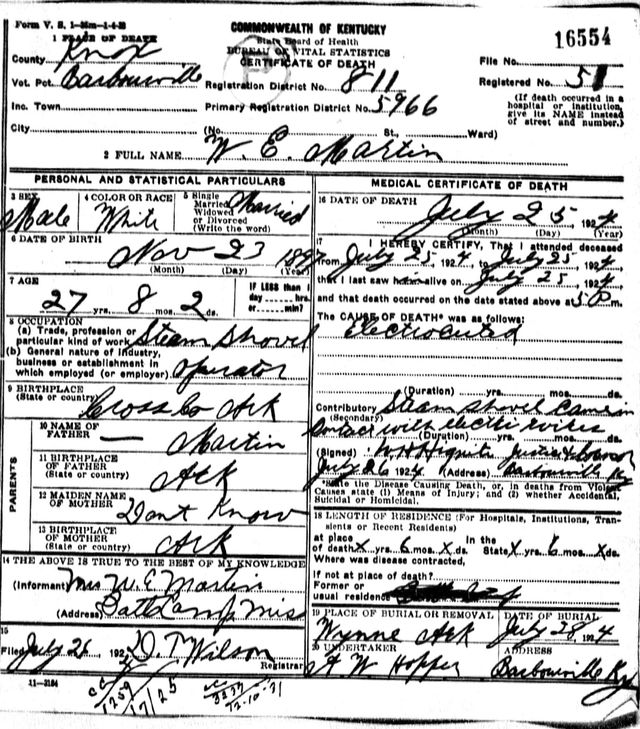 Form V. S. 1-35m-1-4-23
COMMONWEALTH OF KENTUCKY
State Board of Health
BUREAU OF VITAL STATISTICS
CERTIFICATE OF DEATH
16554
1 PLACE OF DEATH
County Knox
File No.
Vot. Pct. Barbourville
Registration District No. 811
Registered No. 51
Inc. Town
Primary Registration District No. 5966
(If death occurred in a hospital or institution, give its NAME instead of street and number.)
City
(No. St., Ward)
2 FULL NAME W. E. Martin
PERSONAL AND STATISTICAL PARTICULARS
3 SEX
Male
4 COLOR OR RACE
White
5 Single
Married
Widowed
or Divorced
(Write the word)
Married
6 DATE OF BIRTH
Nov 23 1897
(Month) (Day) (Year)
7 AGE
27 yrs. 8 mos. 2 ds.
IF LESS than 1
day hrs.
or min?
8 OCCUPATION
(a) Trade, profession or
particular kind of work Steam Shovel
(b) General nature of industry,
business or establishment in
which employed (or employer) operator
9 BIRTHPLACE
(State or country)
Cross Co Ark
PARENTS
10 NAME OF
FATHER — Martin
11 BIRTHPLACE
OF FATHER
(State or country) Ark
12 MAIDEN NAME
OF MOTHER Dont Know
13 BIRTHPLACE
OF MOTHER
(State or country) Ark
14 THE ABOVE IS TRUE TO THE BEST OF MY KNOWLEDGE
(Informant) Mrs W. E Martin
(Address) Miss
15
Filed July 26, 192 D. T Wilson
Registrar
11-3184
MEDICAL CERTIFICATE OF DEATH
16 DATE OF DEATH
July 25, 1924
(Month) (Day) (Year)
17 I HEREBY CERTIFY, That I attended deceased
from July 25 1924, to July 25, 1924
that I last saw him alive on July 25, 1924
and that death occurred on the date stated above at 5 P. m.
The CAUSE OF DEATH* was as follows:
Electrocuted
(Duration) yrs. mos. ds.
Contributory Steam Shovel Came in
(Secondary)
Contact with electric wires
(Duration) yrs. mos. ds.
(Signed)
July 26 1924 (Address) Barbourville Ky
*State the Disease Causing Death, or, in deaths from Violent
Causes state (1) Means of Injury; and (2) whether Accidental,
Suicidal or Homicidal.
18 LENGTH OF RESIDENCE (For Hospitals, Institutions, Transients or Recent Residents)
at place
of death X yrs. 6 mos. X ds.
In the
State X yrs. 6 mos. X ds.
Where was disease contracted,
If not at place of death?
Former or
usual residence
19 PLACE OF BURIAL OR REMOVAL
Wynne Ark
DATE OF BURIAL
July 28, 1924
20 UNDERTAKER
A W Hopper
ADDRESS
Barbourville Ky